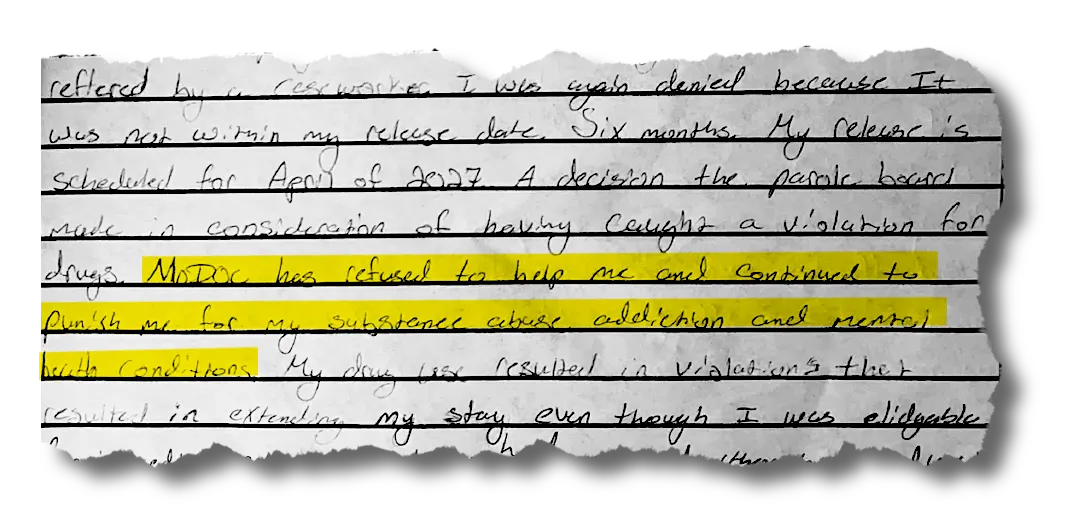 reffered by a caseworker I was again denied because It
was not within my release date. Six months. My release is
scheduled for April of 2027. A decision the parole board
made in consideration of having caught a violation for
drugs. MoDOC has refused to help me and continued to
punish me for my substance abuse addiction and mental
health conditions. My drug use resulted in violations that
resulted in extending my stay even though I was elidgeable